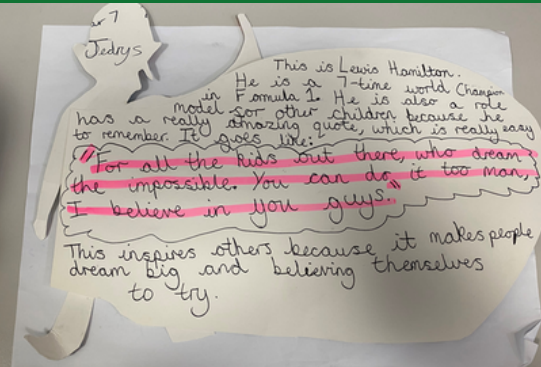 7
Jedrys
This is Lewis Hamilton.
He is a 7-time world Champion
in Formula 1. He is also a role
model for other children because he
has a really amazing quote, which is really easy
to remember. It goes like:
"For all the kids out there, who dream
the impossible. You can do it too man,
I believe in you guys."
This inspires others because it makes people
dream big and believing themselves
to try.